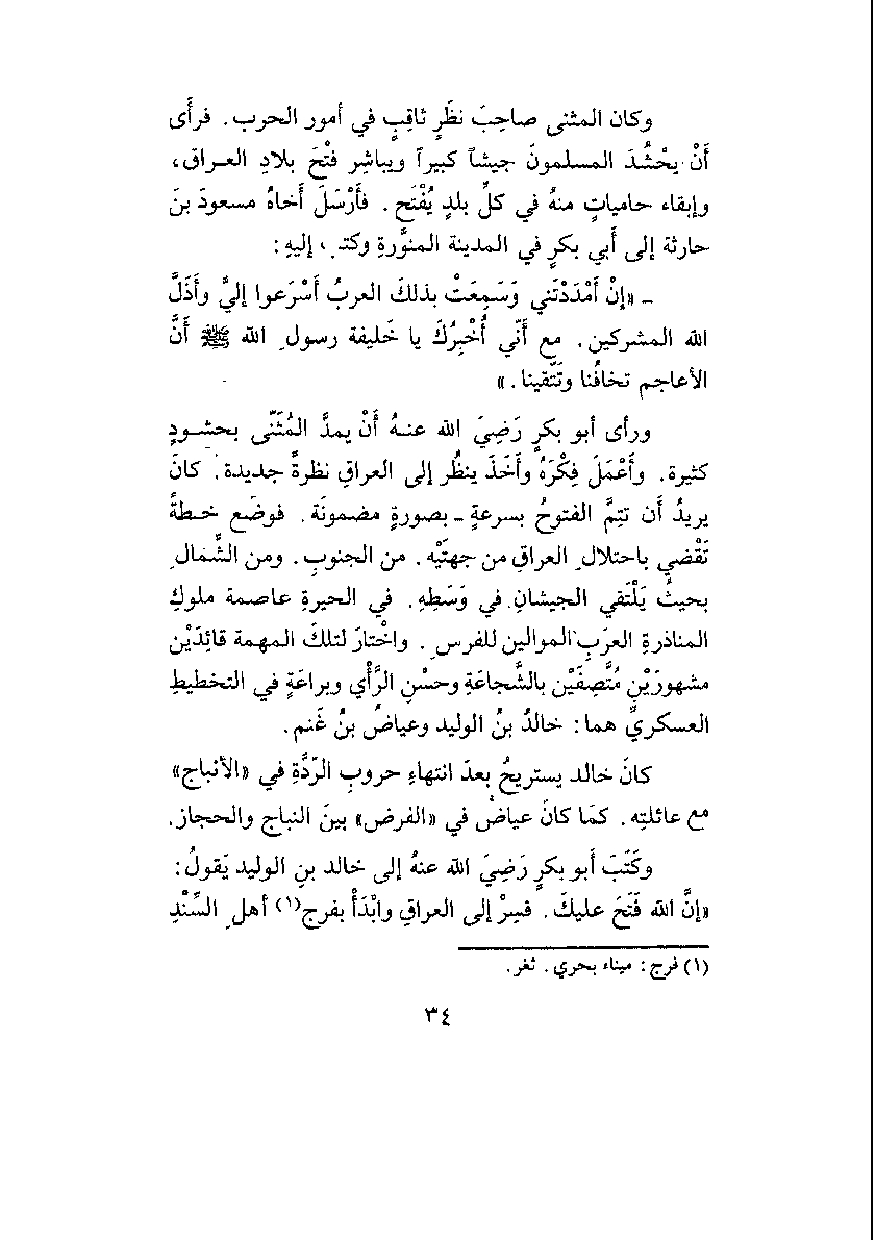 وكان المثنى صاحِبَ نظَرٍ ثاقِبٍ في أمور الحرب . فرأى
أنْ يحْشُدَ المسلمونَ جيشاً كبيراً ويباشِر فتْحَ بلادِ العراق،
وإبقاء حامياتٍ منهُ في كلِّ بلدٍ يُفْتَح . فأرْسَلَ أخاهُ مسعودَ بنَ
حارثة إلى أبي بكرٍ في المدينة المنوَّرةِ إليهِ :
ـ «إنْ أمْدَدْتَني وَسَمِعَتْ بذلكَ العربُ أسْرَعوا إليَّ وأذَّلَ
الله المشركين . مع أنّي أُخْبِرُكَ يا خَليفة رسولِ الله ﷺ أنَّ
الأعاجم تخافُنا وتَتّقينا . »
ورأى أبو بكرٍ رَضِيَ الله عنهُ أنْ يمدَّ المُثَنّى بحشودٍ
كثيرة . وأعْمَلَ فِكْرَهُ وأخَذَ ينظُر إلى العراقِ نظرةً جديدة : كانَ
يريدُ أن تتِمَّ الفتوحُ بسرعةٍ ـ بصورةٍ مضمونَة . فوضَع خطةً
تَقْضي باحتلالِ العراقِ من جهتَيْه . من الجنوبِ . ومن الشَّمالِ
بحيثُ يَلْتَقي الجيشانِ في وَسَطِهِ . في الحيرةِ عاصمة ملوكِ
المناذرةِ العرَبِ الموالين للفرسِ . واخْتارَ لتلكَ المهمة قائِدَيْن
مشهورَيْنِ مُتَّصِفَيْن بالشَّجاعَةِ وحسْنِ الرَّأْي وبراعَةٍ في التخطيطِ
العسكريِّ هما : خالدُ بنُ الوليد وعياضُ بنُ غَنم .
كانَ خالد يستريحُ بعدَ انتهاءِ حروبِ الرّدَّةِ في «الأنباج»
مع عائلتِه . كمَا كانَ عياضُ في «الفرض» بينَ النباج والحجاز.
وكَتَبَ أبو بكرٍ رَضِيَ الله عنهُ إلى خالد بنِ الوليد يَقولُ :
«إنَّ الله فَتَحَ عليكَ . فسِرْ إلى العراقِ وابْدَأْ بفرج(١) أهلِ السِّنْدِ
(١) فرج : ميناء بحري . ثغر .
٣٤